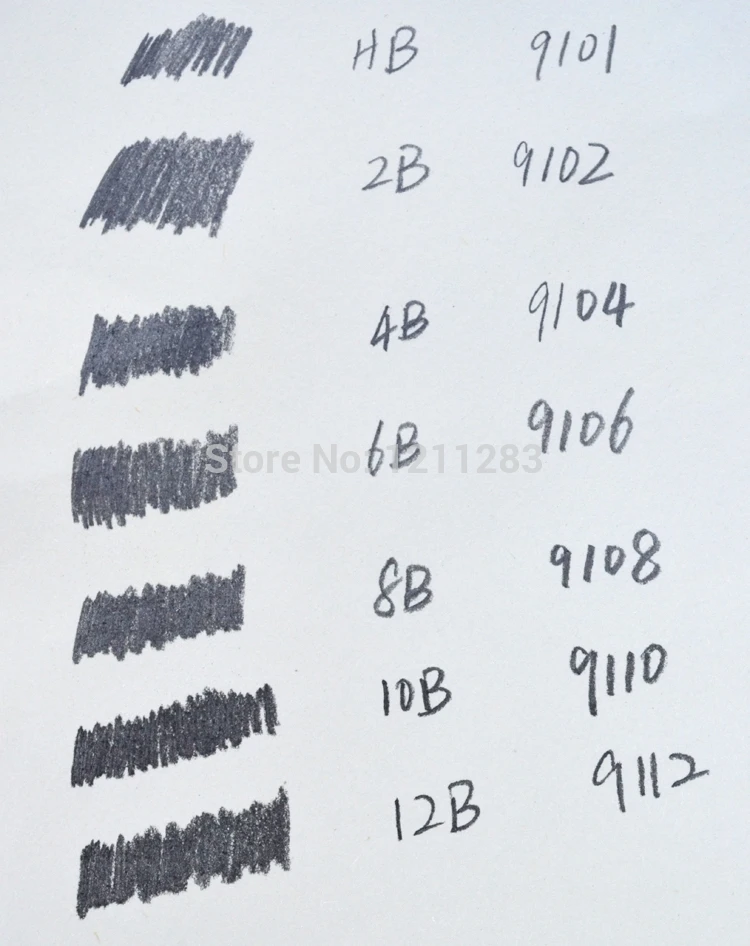 HB 9101
2B 9102
4B 9104
6B 9106
Store No: 1211283
8B 9108
10B 9110
12B 9112